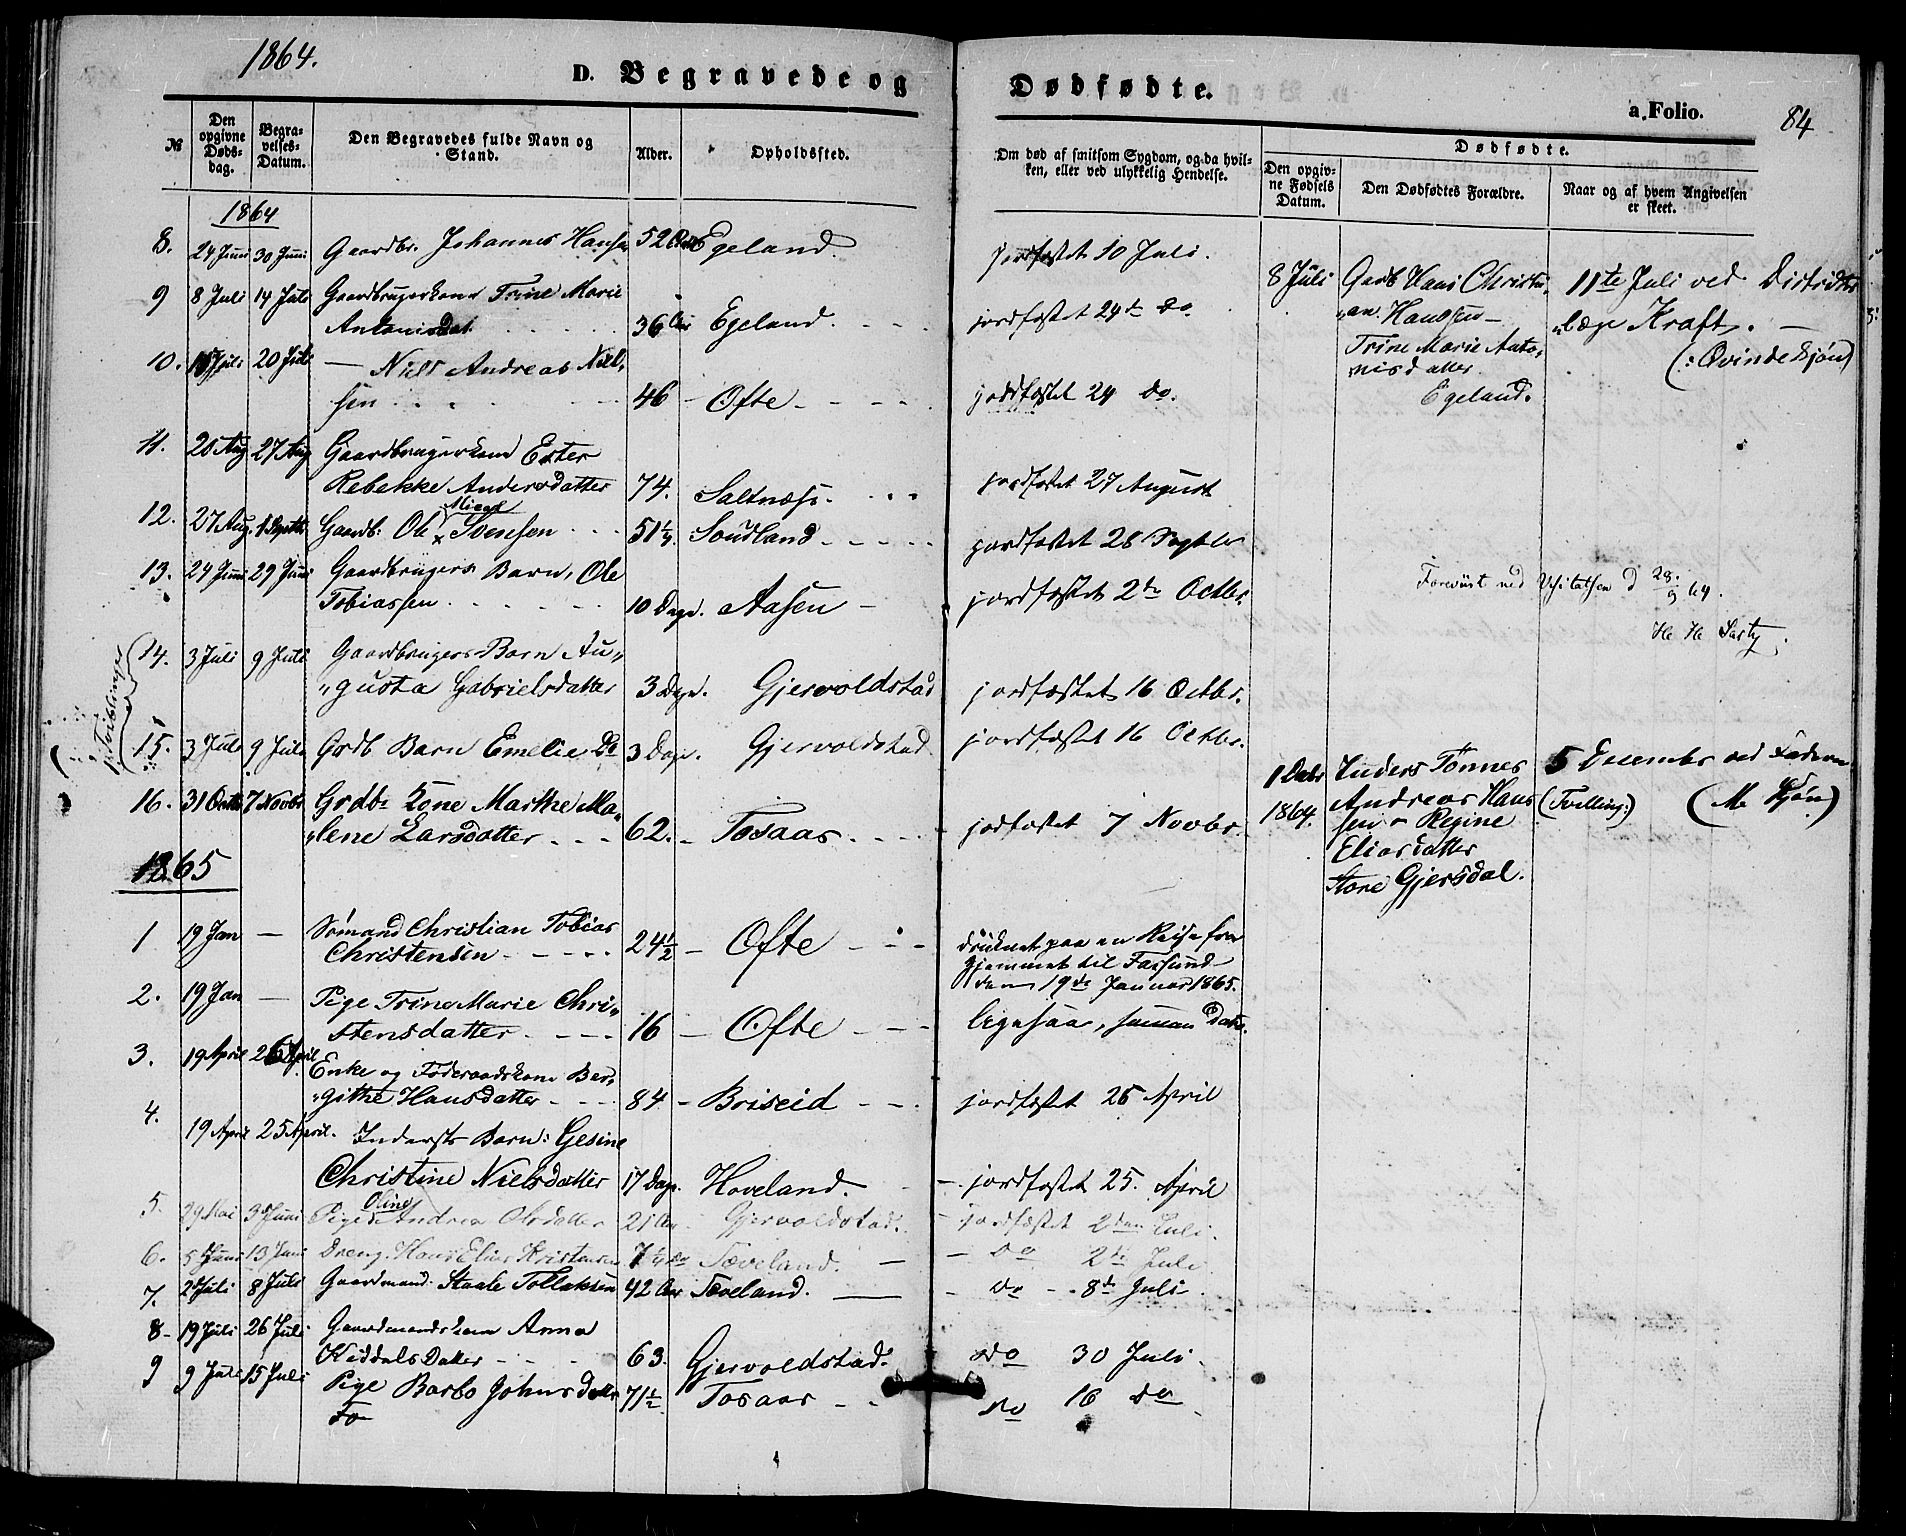 1864.
D. Begravede og Dødfødte.
a. Folio. 84
No
Den opgivne Dødsdag.
Begravelses-Datum.
Den Begravedes fulde Navn og Stand.
Alder.
Opholdssted.
Om død af smitsom Sygdom, og da hvilken, eller ved ulykkelig Hendelse.
Dødfødte.
Den opgivne Fødsels Datum.
Den Dødfødtes Forældre.
Naar og af hvem Angivelsen er skeet.
1864
8. 24 Juni 30 Juni Gaardbr. Johannes Hansen 52 Aar Egeland. jordfæstet 10 Juli.
9 8 Juli 14 Juli Gaardbrugerkone Trine Marie
Antonisdat. 36 Aar Egeland. jordfæstet 24de do
10. Juli 20 Juli — Niels Andreas Niel-
sen 46 — Ofte — jordfæstet 24 do.
11. 20 Aug 27 Aug Gaardbrugerkone Ester
Rebekke Andersdatter 74. Saltnæss. jordfæstet 27 August
12. 27 Aug. 1 Septbr Gaardb: Ole Svensen 51 Soudland jordfæstet 28 Septbr
13. 24 Juni 29 Juni Gaardbrugers Barn, Ole
Tobiassen 10 Dage. Aasen — jordfæstet 2de Octbr.
14. 3 Juli 9 Juli Gaardbrugers Barn Au„
„gusta Gabrielsdatter 3 Dage. Gjervoldstad jordfæstet 16 Octbr.
Tvillinger
15. 3 Juli 9 Juli Grdb Barn Emelie Do 3 Dage. Gjervoldstad jordfæstet 16 Octbr.
16. 31 Octb 7 Novbr Grdbr Kone Marthe Ma„
„lene Larsdatter 62. Tosaas. jordfæstet 7 Novbr.
8 Juli Gaardb Hans Christi„
„an Hansen —
Trine Marie Anto„
nisdatter
Egeland.
11te Juli ved Distrikts
„læge Kraft. —
(: Qvindekjøn)
Foreviist ved Visitatsen d 28/9 64.
1 Decbr
1864.
Inders Tønnes
Andreas Han-
sen — Regine
Eliasdatter
Store Gjersdal.
5 December ved Faderen
(Tvilling:) (M. Kjøn)
1865
1 19 Jan — Sømand Christian Tobias
Christensen 24½ — Ofte druknet paa en Reise fra
Hjemmet til Farsund
den 19de Januar 1865.
2. 19 Jan — Pige Trine Marie Chri„
stensdatter 16 — Ofte ligesaa, samme Dato.
3. 19 April 26 April Enke og Føderaadskone Ber„
„githe Hansdatter 84 — Briseid jordfæstet 26 April
4. 19 April 25 April. Inderst: Barn: Gesine
Christine Nielsdatter 17 Dage. Hoveland. jordfæstet 25. April
5. 29 Mai 3 Juni Pige Oline Andrea Olsdatter 21 Aar Gjervoldstad. jordfæstet 2den Juli.
6. 5 Juni 13 Juni Dreng. Hans Elias Kristensen 7 Tæveland. — Do 2de Juli
7. 2 Juli 8 Juli Gaardmand. Staale Tollaksen 42 Aar Tæveland. — Do — 8de Juli
8 — 19 Juli 26 Juli Gaardmandskone Anna
Keddels Datter 63. Gjervoldstad. Do 30 Juli
9 9 Juli 15 Juli Pige Barbo Johnsdatter 71½ Tosaas Do 16 Do